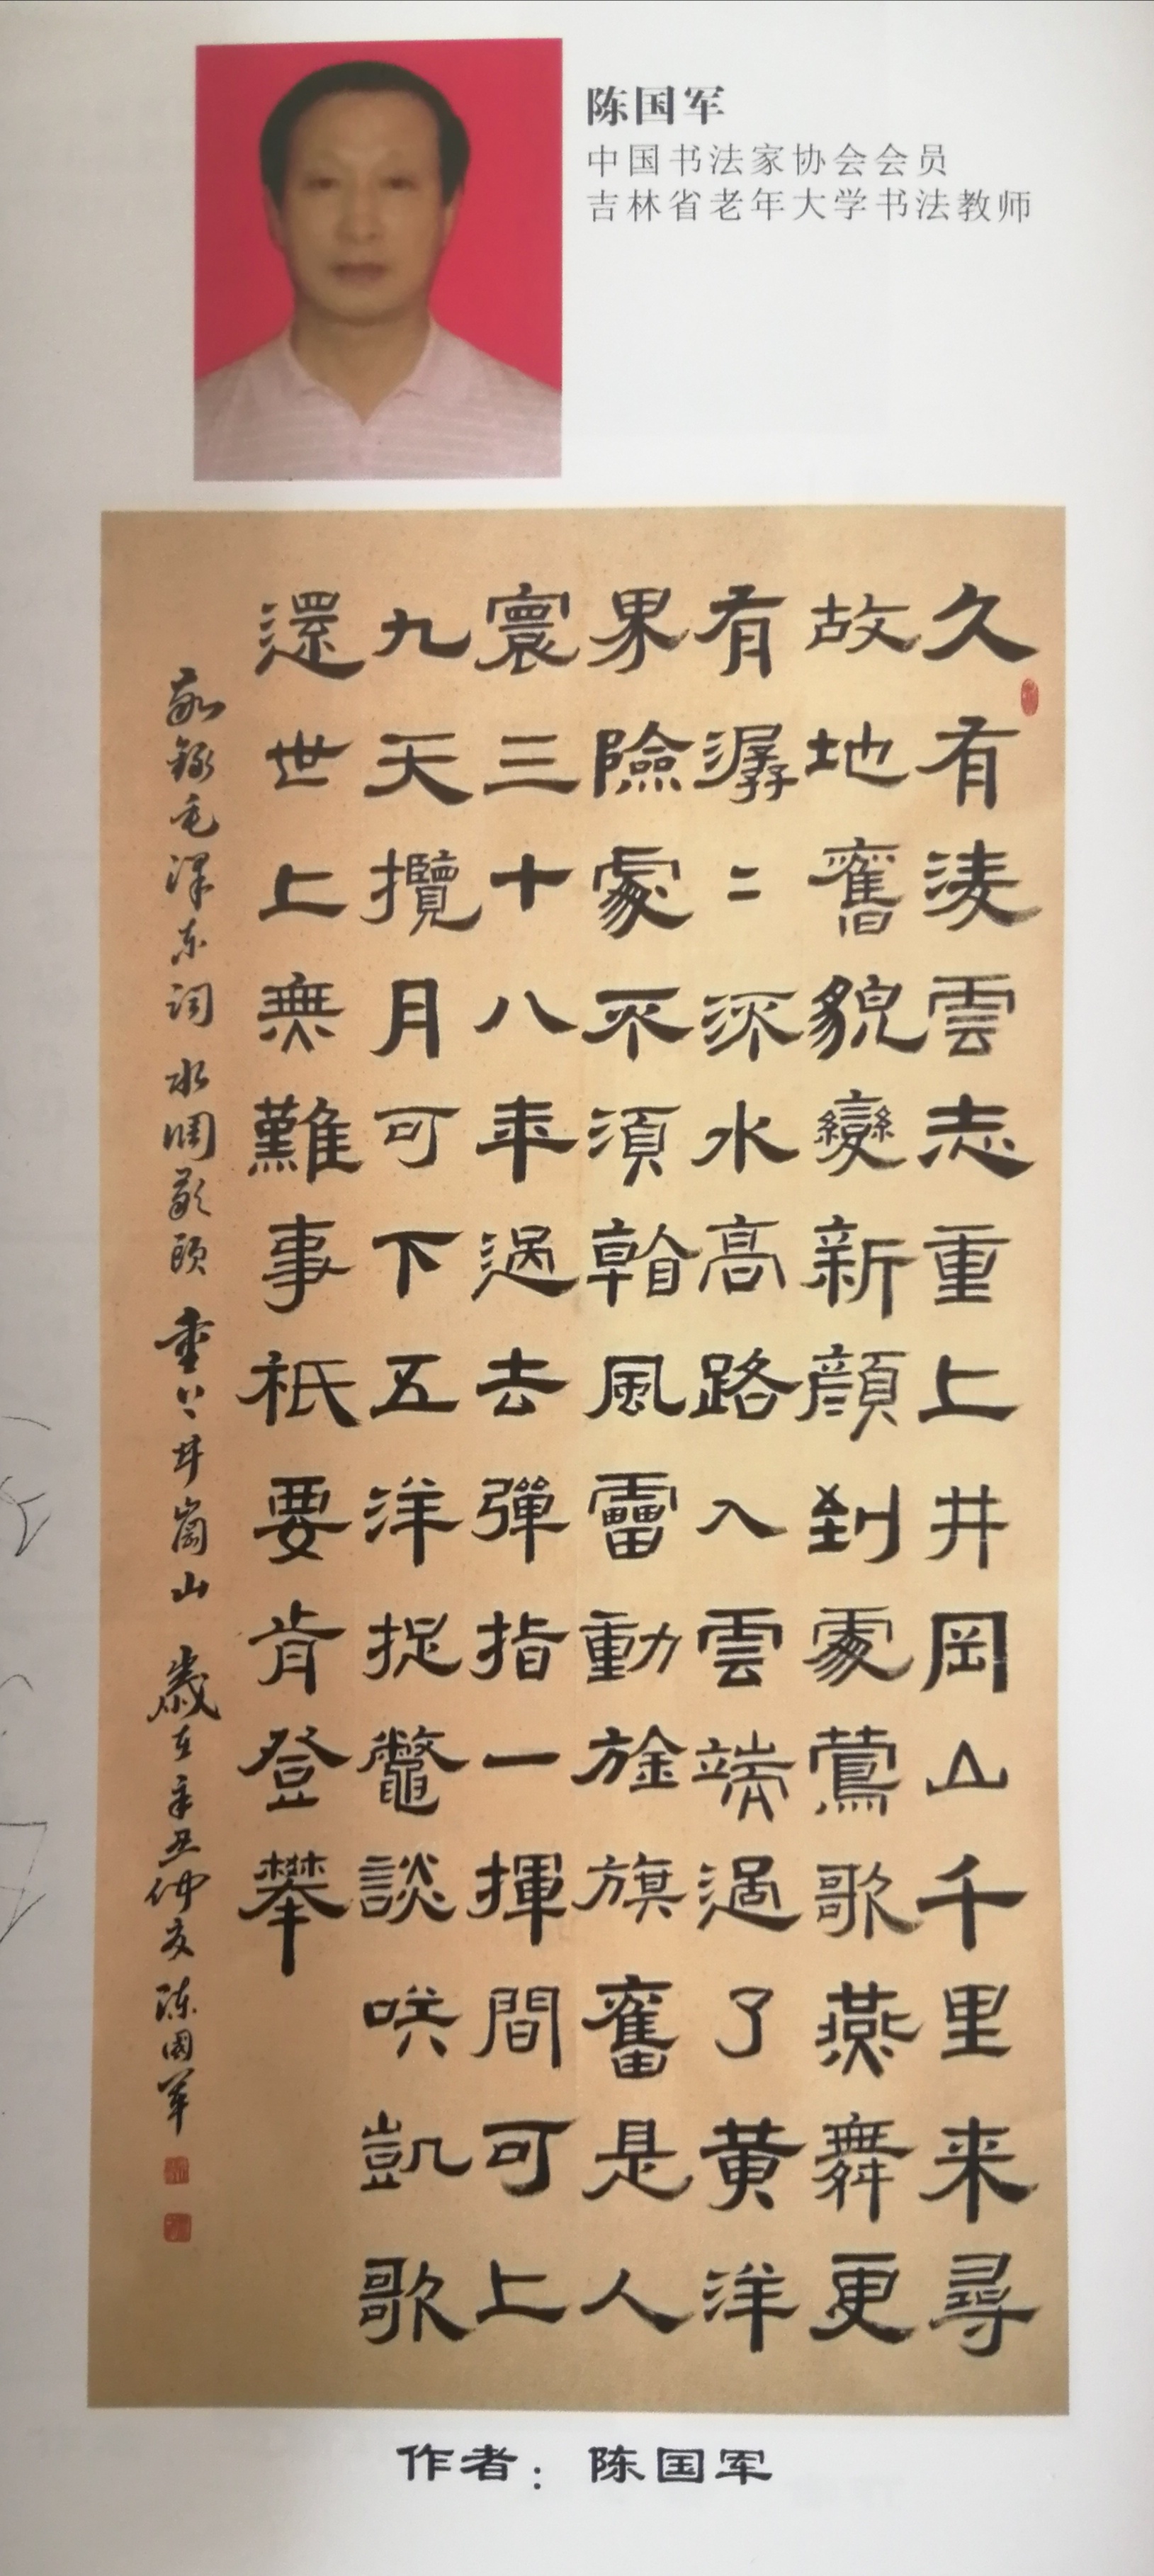 陈国军
中国书法家协会会员
吉林省老年大学书法教师
久有淩雲志重上井岡山千里来尋
故地舊貌變新顔到處鶯歌燕舞更
有潺二流水高路入雲端過了黄洋
界險處不須看風雷動旌旗奮是人
寰三十八年過去彈指一揮間可上
九天攬月可下五洋捉鼈談咲凱歌
還世上無難事祇要肯登攀
敬録毛澤东詞 水调歌頭 重上井崗山 歲在辛丑仲夏陈國军
作者：陈国军